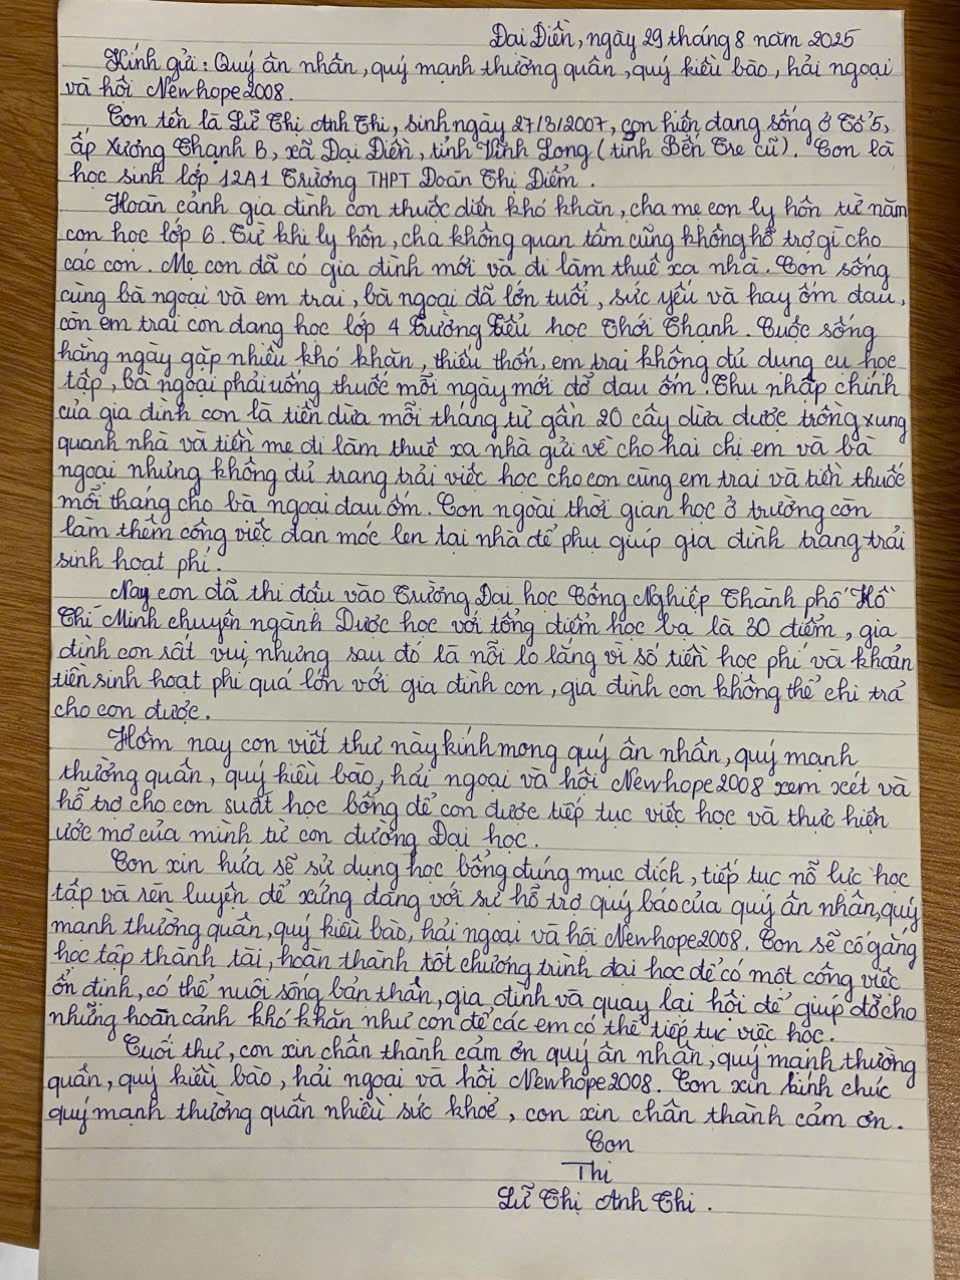 Đại Điền, ngày 29 tháng 8 năm 2025
Kính gửi: Quý ân nhân, quý mạnh thường quân, quý kiều bào, hải ngoại
và hội Newhope2008.
Con tên là Lữ Thị Anh Thi, sinh ngày 27/3/2007, con hiện đang sống ở Tổ 5,
ấp Xương Thạnh B, xã Đại Điền, tỉnh Vĩnh Long (tỉnh Bến Tre cũ). Con là
học sinh lớp 12A1 Trường THPT Đoàn Thị Điểm.
Hoàn cảnh gia đình con thuộc diện khó khăn, cha mẹ con ly hôn từ năm
con học lớp 6. Từ khi ly hôn, cha không quan tâm cũng không hỗ trợ gì cho
các con. Mẹ con đã có gia đình mới và đi làm thuê xa nhà. Con sống
cùng bà ngoại và em trai, bà ngoại đã lớn tuổi, sức yếu và hay ốm đau,
còn em trai con đang học lớp 4 Trường Tiểu học Thới Thạnh. Cuộc sống
hằng ngày gặp nhiều khó khăn, thiếu thốn, em trai không đủ dụng cụ học
tập, bà ngoại phải uống thuốc mỗi ngày mới đỡ đau ốm. Thu nhập chính
của gia đình con là tiền dừa mỗi tháng từ gần 20 cây dừa được trồng xung
quanh nhà và tiền mẹ đi làm thuê xa nhà gửi về cho hai chị em và bà
ngoại nhưng không đủ trang trải việc học cho con cùng em trai và tiền thuốc
mỗi tháng cho bà ngoại đau ốm. Con ngoài thời gian học ở trường còn
làm thêm công việc đan móc len tại nhà để phụ giúp gia đình trang trải
sinh hoạt phí.
Nay con đã thi đậu vào Trường Đại học Công Nghiệp Thành phố Hồ
Chí Minh chuyên ngành Dược học với tổng điểm học bạ là 30 điểm, gia
đình con rất vui, nhưng sau đó là nỗi lo lắng vì số tiền học phí và khoản
tiền sinh hoạt phí quá lớn với gia đình con, gia đình con không thể chi trả
cho con được.
Hôm nay con viết thư này kính mong quý ân nhân, quý mạnh
thường quân, quý kiều bào, hải ngoại và hội Newhope2008 xem xét và
hỗ trợ cho con suất học bổng để con được tiếp tục việc học và thực hiện
ước mơ của mình từ con đường Đại học.
Con xin hứa sẽ sử dụng học bổng đúng mục đích, tiếp tục nỗ lực học
tập và rèn luyện để xứng đáng với sự hỗ trợ quý báo của quý ân nhân, quý
mạnh thường quân, quý kiều bào, hải ngoại và hội Newhope2008. Con sẽ cố gắng
học tập thành tài, hoàn thành tốt chương trình đại học để có một công việc
ổn định, có thể nuôi sống bản thân, gia đình và quay lại hội để giúp đỡ cho
những hoàn cảnh khó khăn như con để các em có thể tiếp tục việc học.
Cuối thư, con xin chân thành cảm ơn quý ân nhân, quý mạnh thường
quân, quý kiều bào, hải ngoại và hội Newhope2008. Con xin kính chúc
quý mạnh thường quân nhiều sức khoẻ, con xin chân thành cảm ơn.
Con
Thi
Lữ Thị Anh Thi.